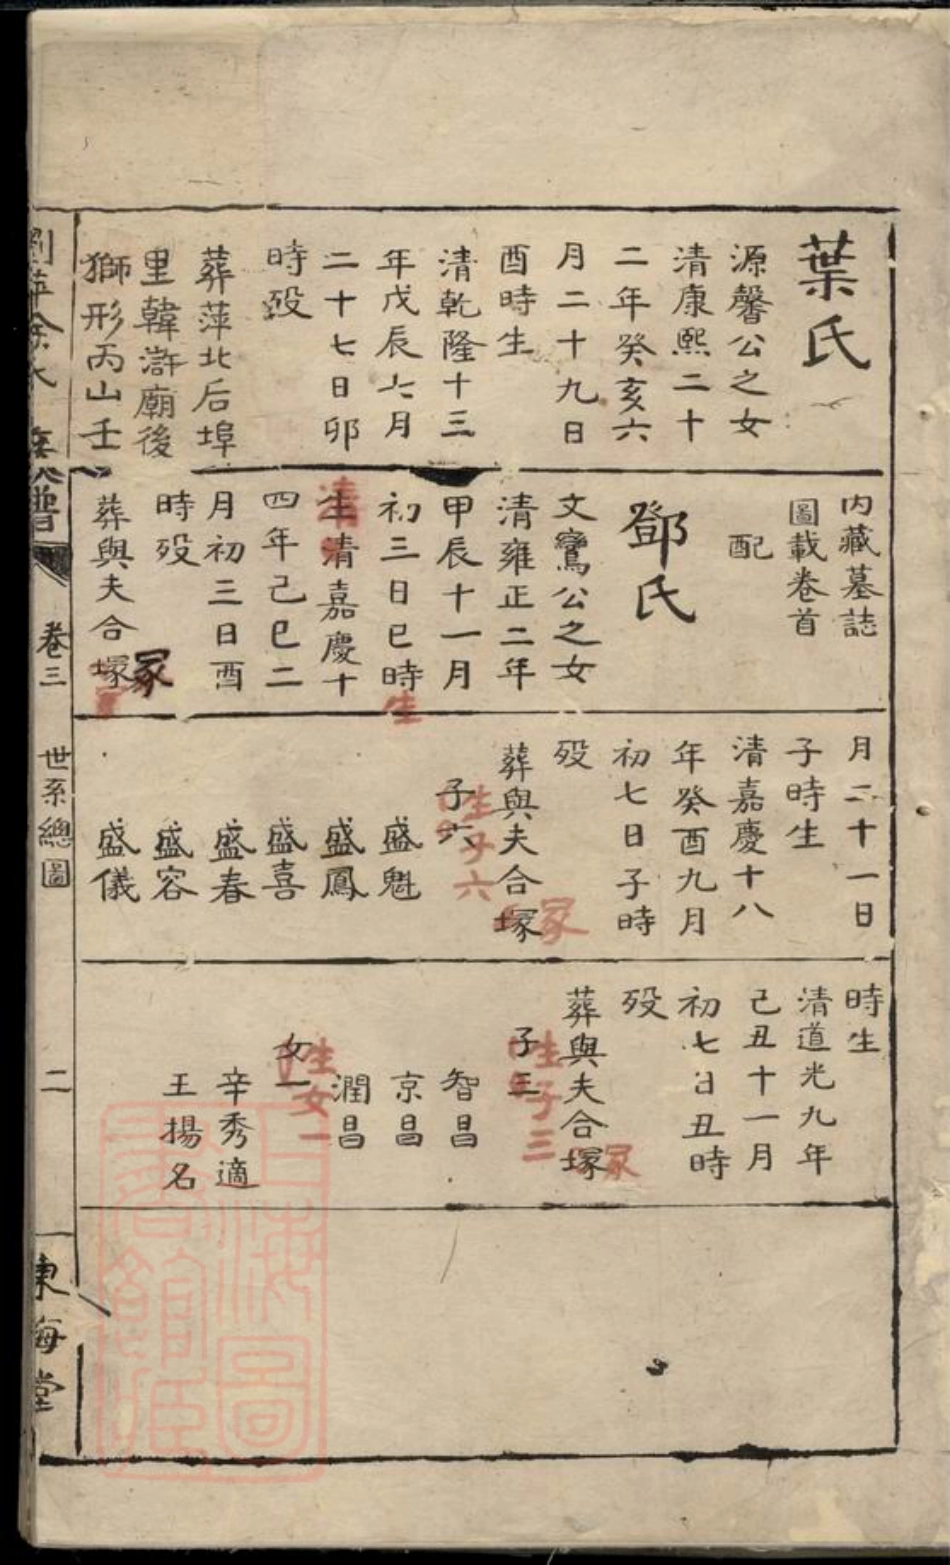 葉氏
源馨公之女
清康熙二十
二年癸亥六
月二十九日
酉時生
清乾隆十三
年戊辰六月
二十七日卯
時歿
葬萍北后埠
里韓滸廟後
獅形丙山壬
内藏墓誌
圖載卷首
配
鄧氏
文鸞公之女
清雍正二年
甲辰十一月
初三日巳時
生
生清嘉慶十
清
四年己巳二
月初三日酉
時歿
葬與夫合塚
冢
月二十一日
子時生
清嘉慶十八
年癸酉九月
初七日子時
歿
葬與夫合塚
冢
子六
生子六
盛魁
盛鳳
盛喜
盛春
盛容
盛儀
時生
清道光九年
己丑十一月
初七日丑時
歿
葬與夫合塚
冢
子三
生子三
智昌
京昌
潤昌
女一
生女一
辛秀適
王揚名
卷三
世系總圖
二
東海堂
上海圖
書館藏